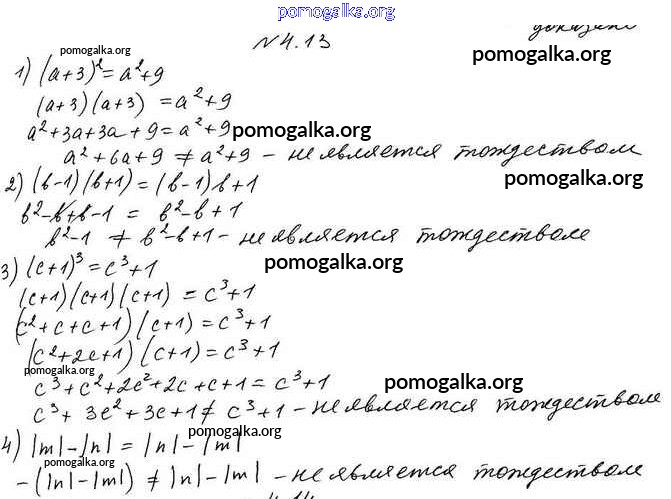 pomogalka.org
N4.13
pomogalka.org
pomogalka.org
1) (a+3)²=a²+9
(a+3)(a+3) = a²+9
a²+3a+3a+9=a²+9 pomogalka.org
a²+6a+9 ≠ a²+9 - не является тождеством
2) (в-1)(в+1)=(в-1)в+1 pomogalka.org
в²-в+в-1 = в²-в+1
в²-1 ≠ в²-в+1 - не является тождеством
3) (c+1)³=c³+1 pomogalka.org
(c+1)(c+1)(c+1) = c³+1
(c²+c+c+1)(c+1)=c³+1
(c²+2c+1)(c+1)=c³+1
pomogalka.org
c³+c²+2c²+2c+c+1=c³+1 pomogalka.org
c³+3c²+3c+1≠c³+1 - не является тождеством
4) |m|-|n| = |n|-|m| pomogalka.org
pomogalka.org
-(|n|-|m|) ≠ |n|-|m| - не является тождеством